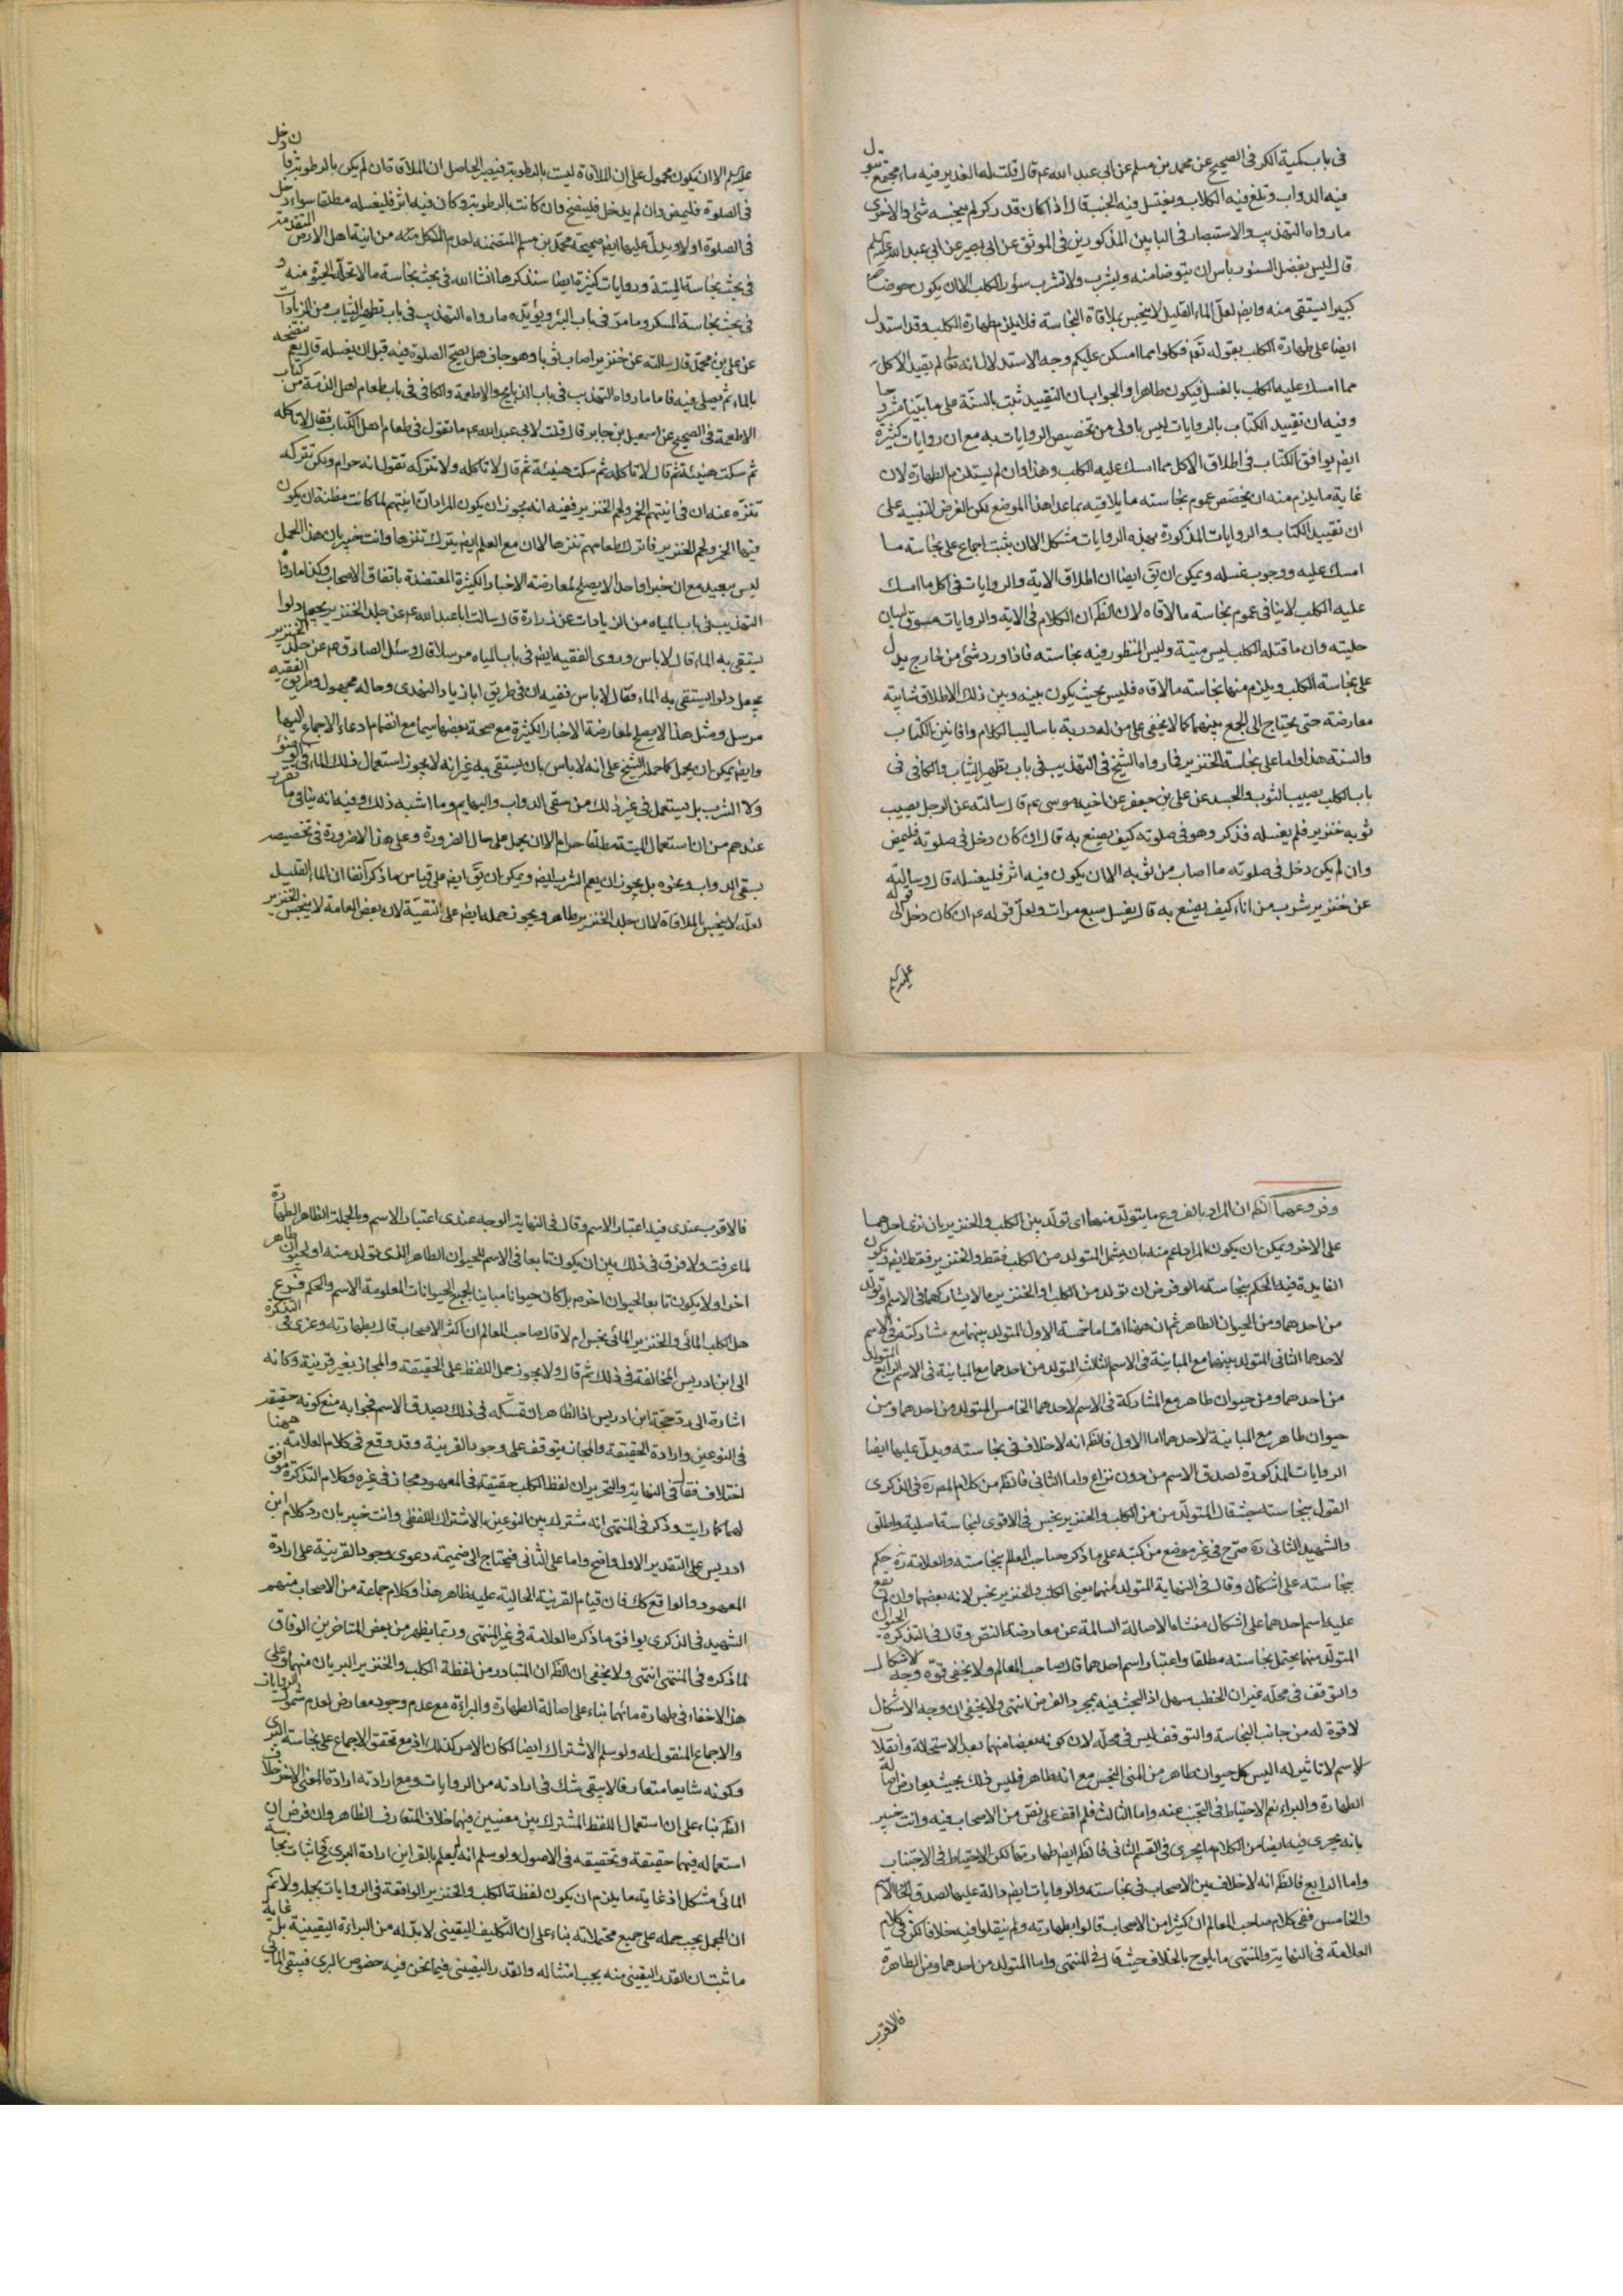 في باب كمية الكر في الصحيح عن محمد بن مسلم عن ابي عبد الله عم قال قلت له الغدير فيه ماء مجتمع تبول
فيه الدواب وتلغ فيه الكلاب ويغتسل فيه الجنب قال اذا كان قدر كر لم ينجسه شئ والاخرى
ما رواه التهذيب والاستبصار في البابين المذكورين في الموثق عن ابي بصير عن ابي عبد الله عليه السلم
قال ليس بفضل السنور باس ان يتوضا منه ويشرب ولا تشرب سؤر الكلب الا ان يكون حوضا
كبيرا يستقى منه وايضا لعل الماء القليل لا ينجس بملاقاة النجاسة فلا يلزم طهارة الكلب وقد استدل
ايضا على طهارة الكلب بقوله تعم فكلوا مما امسكن عليكم وجه الاستدلال انه تعالى لم يقيد الاكل
مما امسك عليه الكلب بالغسل فيكون طاهرا والجواب ان التقييد ثبت بالسنة على ما بينا مشروحا
وفيه ان تقييد الكتاب بالروايات ليس باولى من تخصيص الروايات به مع ان روايات كثيرة
ايضا يوافق الكتاب في اطلاق الاكل مما امسك عليه الكلب وهذا وان لم يستلزم الطهارة لان
غاية ما يلزم منه ان يخصص عموم نجاسته ما يلاقيه بما عدا هذا الموضع لكن الغرض التنبيه على
ان تقييد الكتاب والروايات المذكورة بهذه الروايات مشكل الا ان يثبت اجماع على نجاسة ما
امسك عليه ووجوب غسله ويمكن ان يق ايضا ان اطلاق الاية والروايات في اكل ما امسك
عليه الكلب لا ينافي عموم نجاسة ما لاقاه لان الظم ان الكلام في الاية والروايات مسوق لبيان
حليته وان ما قتله الكلب ليس ميتة وليس المنظور فيه نجاسته فاذا ورد شئ من خارج يدل
على نجاسة الكلب ويلزم منها نجاسة ما لاقاه فليس بحيث يكون بينه وبين ذلك الاطلاق شائبة
معارضة حتى يحتاج الى الجمع بينهما كما لا يخفى على من له دربة باساليب الكلام وافانين الكتاب
والسنة هذا واما على نجاسة الخنزير فما رواه الشيخ في التهذيب في باب تطهير الثياب والكافي في
باب الكلب يصيب الثوب والجسد عن علي بن جعفر عن اخيه موسى عم قال سالته عن الرجل يصيب
ثوبه خنزير فلم يغسله فذكر وهو في صلوته كيف يصنع به قال ان كان دخل في صلوته فليمض
وان لم يكن دخل في صلوته ما اصاب من ثوبه الا ان يكون فيه اثر فليغسله قال وسالته
عن خنزير شرب من اناء كيف يصنع به قال يغسل سبع مرات ولعل قوله عم ان كان دخل الى قوله
عليه السلم
عليه السلم الا ان يكون محمول على ان الملاقاة ليست بالرطوبة فيصير الحاصل ان الملاقاة ان لم يكن بالرطوبة فان دخل
في الصلوة فليمض وان لم يدخل فلينضح وان كانت بالرطوبة وكان فيه اثر فليغسله مطلقا سواء دخل
في الصلوة اولا ويدل عليهما ايضا صحيحة محمد بن مسلم المتضمنه لعدم الاكل منه من انية اهل الارض المتقدمة
في بحث نجاسة الميتة وروايات كثيرة ايضا سنذكرها انشا الله في بحث نجاسة ما لا تحله الحيوة منه و
في بحث نجاسة المسكر وما مر في باب البئر ويؤيده ما رواه التهذيب في باب تطهير الثياب من الزيادات
عن علي بن محمد قال سالته عن خنزير اصاب ثوبا وهو جاف هل يصح الصلوة فيه قبل ان يغسله قال نعم ينضحه
بالماء ثم يصلي فيه فاما ما رواه التهذيب في باب الذبايح والاطعمة والكافي في باب طعام اهل الذمة من كتاب
الاطعمة في الصحيح عن اسمعيل بن جابر قال قلت لابي عبد الله عم ما تقول في طعام اهل الكتاب فقال لا تاكله
ثم سكت هنيئة ثم قال لا تاكله ثم سكت هنيئة ثم قال لا تاكله ولا تتركه تقول انه حرام ولكن تتركه
تنزه عنه ان في انيتهم الخمر ولحم الخنزير ففيه انه يجوز ان يكون المراد ان انيتهم لما كانت مظنة ان يكون
فيها الخمر ولحم الخنزير فاترك طعامهم تنزها لا ان مع العلم ايضا يترك تنزها وانت خبير بان هذا الحمل
ليس ببعيد مع ان خبرا واحدا لا يصلح لمعارضة الاخبار الكثيرة المعتضدة باتفاق الاصحاب وكذا ما رواه
التهذيب في باب المياه من الزيادات عن زرارة قال سالت ابا عبد الله عم عن جلد الخنزير يجعل دلوا
يستقى به الماء قال لا باس وروى الفقيه ايضا في باب المياه مرسلا قال وسئل الصادق عم عن جلد الخنزير
يجعل دلوا يستقى به الماء فقال لا باس ففيه ان في طريق ابا زياد النهدي وحاله مجهول وطريق الفقيه
مرسل ومثل هذا لا يصلح لمعارضة الاخبار الكثيرة مع صحة بعضها سيما مع انضمام ادعاء الاجماع اليها
وايضا يمكن ان يحمل كما حمله الشيخ على انه لا باس بان يستقى به غير انه لا يجوز استعمال ذلك الماء في الوضوء
ولا الشرب بل يستعمل في غير ذلك من سقي الدواب والبهايم وما اشبه ذلك وفيه انه ينافي ما تقرر
عندهم من ان استعمال الميتة مطلقا حرام الا ان يحمل على حال الضرورة وعلى هذا لا ضرورة في تخصيصه
بسقي الدواب ونحوه بل يجوز ان يعم الشرب ايضا ويمكن ان يق ايضا على قياس ما ذكر آنفا ان الماء القليل
لعله لا ينجس بالملاقاة لا ان جلد الخنزير طاهر ويجوز حمله ايضا على التقية لان بعض العامة لا ينجس الخنزير
وفروعهما الظم ان المراد بالفروع ما يتولد منهما اي تولد بين الكلب والخنزير بان نزى احدهما
على الاخر ويمكن ان يكون المراد اعم منه بان يشمل المتولد من الكلب فقط والخنزير فقط ايضا ويكون
الفايدة فيه الحكم بنجاسته لو فرض ان تولد من الكلب او الخنزير ما لا يشاركهما في الاسم وتولد
من احدهما ومن الحيوان الطاهر ثم ان ههنا اقساما خمسة الاول المتولد بينهما مع مشاركته في الاسم
لاحدهما الثاني المتولد بينهما مع المباينة في الاسم الثالث المتولد من احدهما مع المباينة في الاسم الرابع المتولد
من احدهما ومن حيوان طاهر مع المشاركة في الاسم لاحدهما الخامس المتولد من احدهما ومن
حيوان طاهر مع المباينة لاحدهما اما الاول فالظم انه لا خلاف في نجاسته ويدل عليها ايضا
الروايات المذكورة لصدق الاسم من دون نزاع واما الثاني فالظم من كلام المص ره في الذكرى
القول بنجاسته حيث قال المتولد من الكلب والخنزير نجس في الاقوى لنجاسة اصليه واطلق
والشهيد الثاني ره صرح في غير موضع من كتبه على ما ذكره صاحب المعالم بنجاسته والعلامة ره حكم
بنجاسته على اشكال وقال في النهاية المتولد منهما يعني الكلب والخنزير نجس لانه بعضهما وان لم يقع
عليه اسم احدهما على اشكال منشاه الاصالة السالمة عن معارضة النص وقال في التذكرة الحيوان
المتولد منهما يحتمل نجاسته مطلقا واعتبار اسم احدهما قال صاحب المعالم ولا يخفى قوة وجه الاشكال
والتوقف في محله غير ان الخطب سهل اذ البحث فيه بمجرد الفرض انتهى ولا يخفى ان وجه الاشكال
لا قوة له من جانب النجاسة والتوقف ليس في محله لان كونه بعضا منهما بعد الاستحالة وانقلاب
الاسم لا تاثير له اليس كل حيوان طاهر من المني النجس مع انه طاهر فليس ذلك بحيث يعارض اصالة
الطهارة والبراءة نعم الاحتياط في التجنب عنه واما الثالث فلم اقف على نص من الاصحاب فيه وانت خبير
بانه يجري فيه ايضا من الكلام ما يجري في القسم الثاني فالظم ايضا طهارته لكن الاحتياط في الاجتناب
واما الرابع فالظم انه لا خلاف بين الاصحاب في نجاسته والروايات ايضا دالة عليها لصدق الاسم
والخامس ففي كلام صاحب المعالم ان كثيرا من الاصحاب قالوا بطهارته ولم ينقلوا فيه خلافا لكن في كلام
العلامة في النهاية والمنتهى ما يلوح بالخلاف حيث قال في المنتهى واما المتولد من احدهما ومن الطاهر
فالاقرب
فالاقرب عندي فيه اعتبار الاسم وقال في النهاية الوجه عندي اعتبار الاسم وبالجملة الظاهر الطهارة
لما عرفت ولا فرق في ذلك بين ان يكون تابعا في الاسم للحيوان الطاهر الذي تولد منه او لحيوان طاهر
اخر او لا يكون تابعا لحيوان اخر بل كان حيوانا مباينا لجميع الحيوانات المعلومة الاسم والحكم فرع
هل الكلب المائي والخنزير المائي نجس ام لا قال صاحب المعالم ان اكثر الاصحاب قال بطهارته وعزى في التذكرة
الى ابن ادريس المخالفة في ذلك ثم قال ولا يجوز حمل اللفظ على الحقيقة والمجاز بغير قرينة وكانه
اشارة الى رد حجة ابن ادريس اذ الظاهر ان تمسكه في ذلك بصدق الاسم فجوابه منع كونه حقيقة
في النوعين وارادة الحقيقة والمجاز يتوقف على وجود القرينة وقد وقع في كلام العلامة ههنا
اختلاف فقال في النهاية والتحرير ان لفظ الكلب حقيقة في المعهود مجاز في غيره وكلام التذكرة موافق
لهما كما رايت وذكر في المنتهى انه مشترك بين النوعين بالاشتراك اللفظي وانت خبير بان رد كلام ابن
ادريس على التقدير الاول واضح واما على الثاني فيحتاج الى ضميمة دعوى وجود القرينة على ارادة
المعهود والواقع كك فان قيام القرينة الحالية عليه ظاهر هذا وكلام جماعة من الاصحاب منهم
الشهيد في الذكرى يوافق ما ذكره العلامة في غير المنتهى وربما يظهر من بعض المتاخرين الوفاق
لما ذكره في المنتهى انتهى ولا يخفى ان الظم ان المتبادر من لفظة الكلب والخنزير البريان منهما وعلى
هذا لا خفاء في طهارة مائيهما بناء على اصالة الطهارة والبراءة مع عدم وجود معارض لعدم شمول الروايات
والاجماع المنقول له ولو سلم الاشتراك ايضا لكان الامر كذلك اذ مع تحقق الاجماع على نجاسة البري
وكونه شايعا متعارفا لا يبقى شك في ارادته من الروايات ومع ارادته ارادة المعنى الاخر خلاف
الظم بناء على ان استعمال اللفظ المشترك بين معنيين فيهما خلاف المتعارف الظاهر وان فرض ان
استعماله فيهما حقيقة وتحقيقه في الاصول ولو سلم انه لم يعلم بالقراين ارادة البري فاثبات نجاسة
المائي مشكل اذ غاية ما يلزم ان يكون لفظة الكلب والخنزير الواقعة في الروايات مجملة ولا نم
ان المجمل يجب حمله على جميع محتملاته بناء على ان التكليف اليقيني لا بد له من البراءة اليقينية بل غاية
ما ثبت ان القدر اليقيني منه يجب امتثاله والقدر اليقيني فيما نحن فيه خصوص البري فيبقى المائي